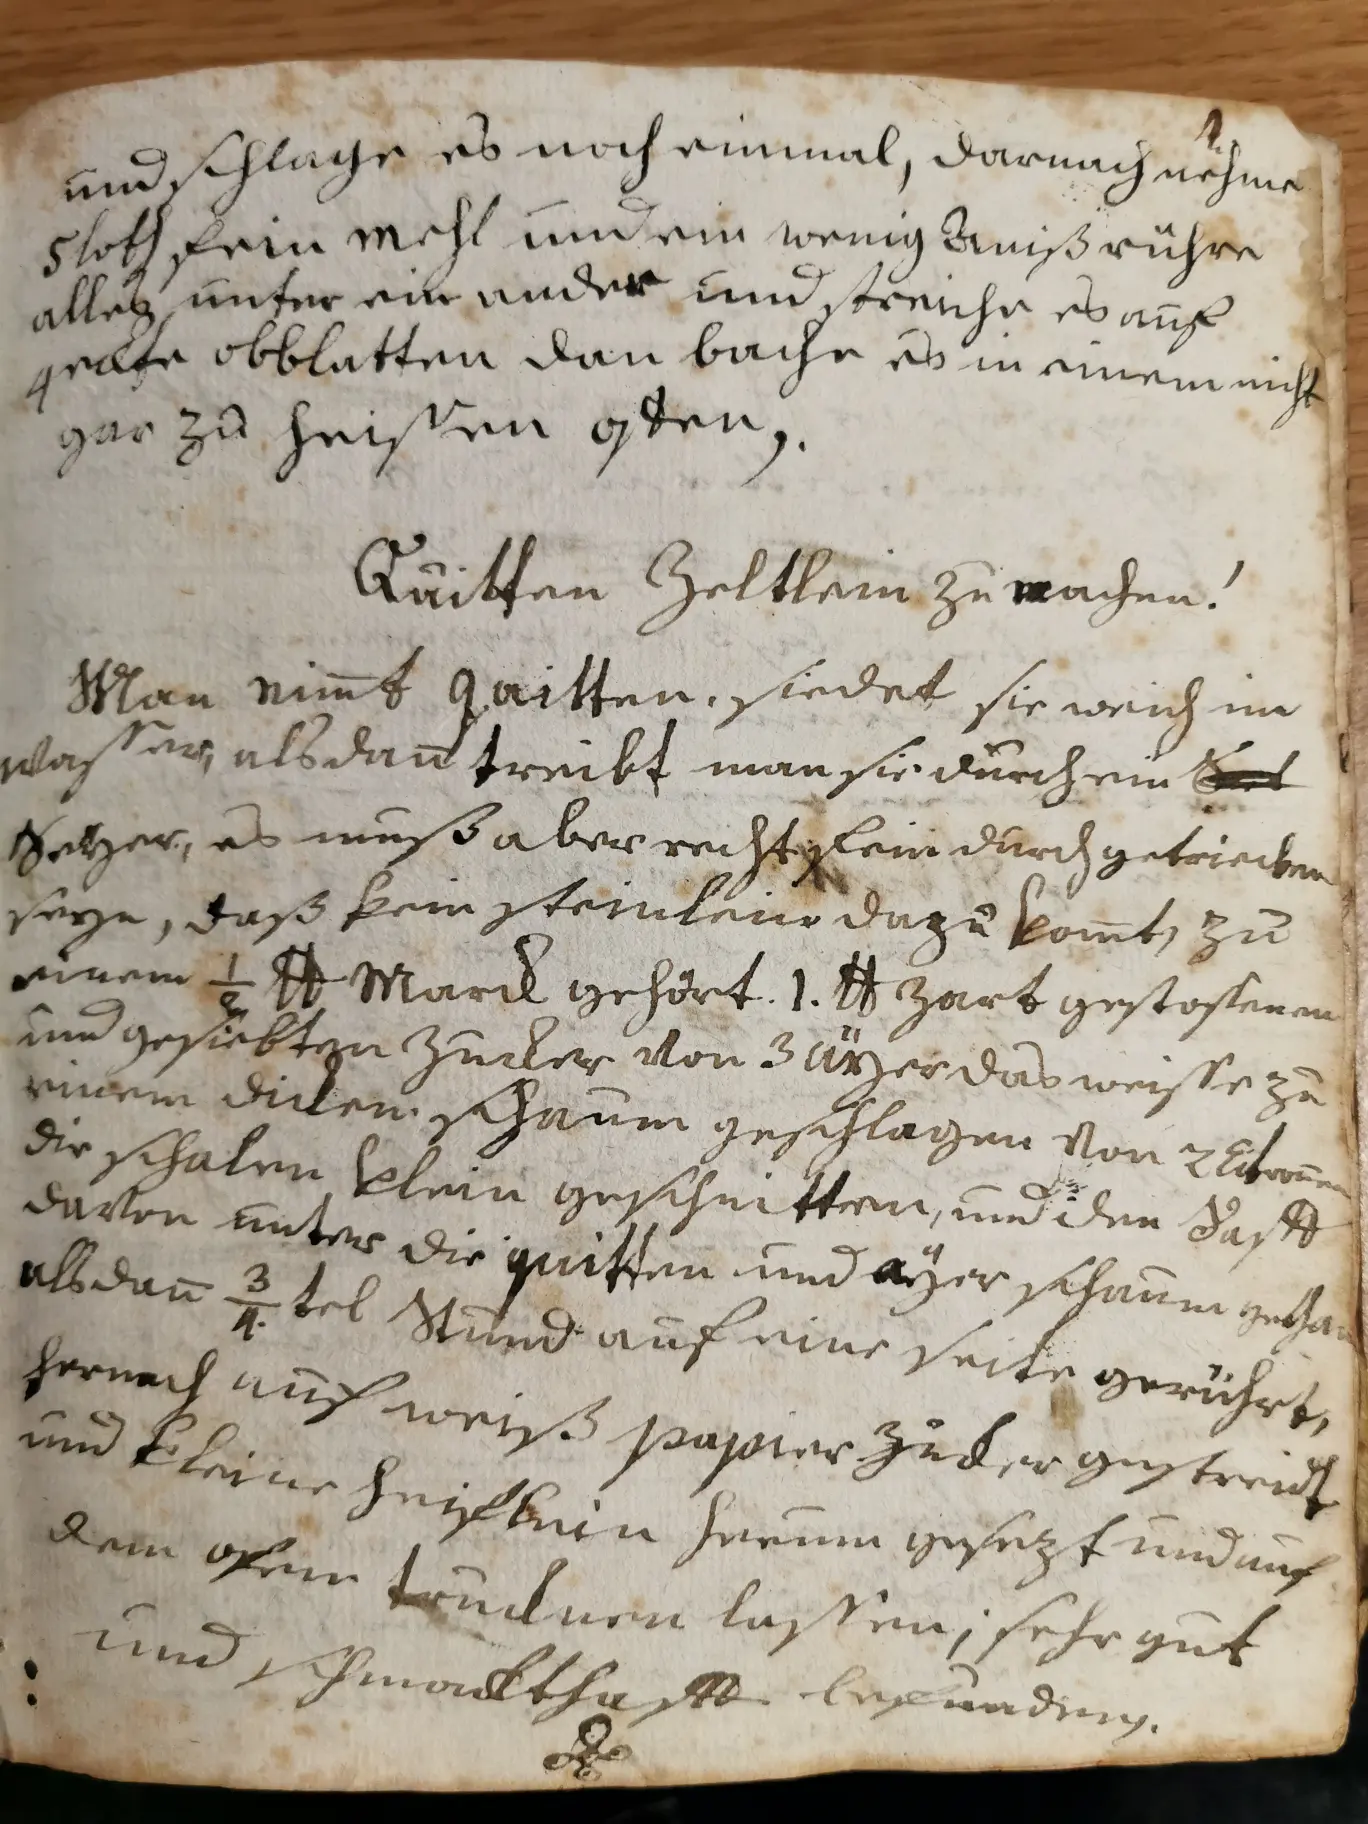 1.
und schlage es noch einmal, darnach nehme
5 loth fein mehl und ein wenig Aniß rühre
alles unter ein ander und streiche es auf
obblatten dan bache es in einem nicht
gar zu heissen ofen,.
Quitten Zeltlein zu machen!
Man nim̅t quitten, siedet sie weich im
wasser, alsdan̅ treibt man sie durch ein
Seyer, es muß aber recht fein durch getrieben
seyn, daß kein steinlein dazu kom̅t, zu
einem 1/2 ℔ Marck gehört. 1. ℔ zart gestossenen
und gesiebten Zucker von 3 äyer das weisse zu
einem dicken schaum geschlagen von 2 Citronen
die schalen klein geschnitten, und den Safft
davon unter die quitten und äyer schaum gethan
alsdan̅ 3/4 tel Stund auf eine seite gerührt,
hernach auf weiß papier Zucker gestreidt
und kleine heiflein herum gesezt und auf
dem ofen trucknen lassen, sehr gut
und schmackthafft befunden,.